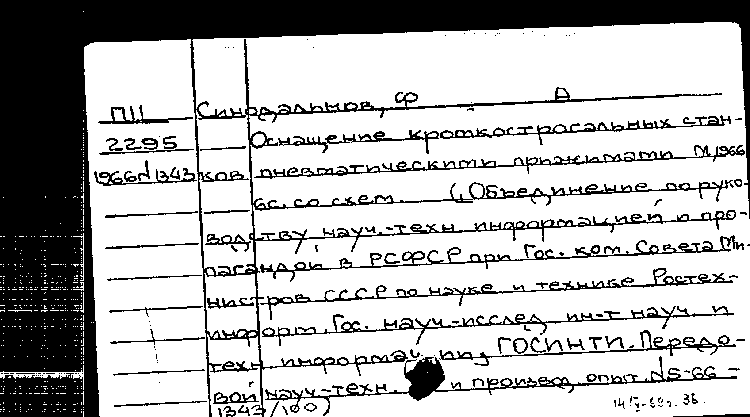 П11 Синодальнов, Ф А
2295 Оснащение кромкострогальных стан-
1966 № 1343 ков пневматическими прижимами М, 1966
6с. со схем. (Объединение по руко-
водству науч.-техн. информацией и про-
пагандой в РСФСР при Гос. ком. Совета Ми-
нистров СССР по науке и технике Ростех-
информ. Гос. науч.-исслед. ин-т науч. и
техн. информации, ГОСИНТИ. Передо-
вой науч.-техн. и производ. опыт. №5-66-
1343/100)